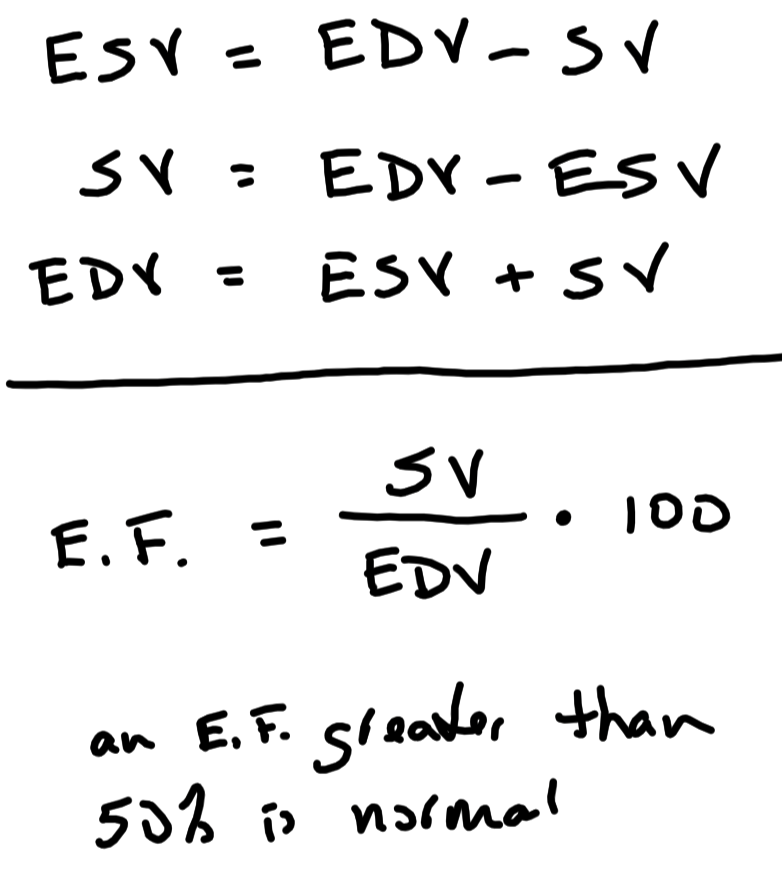 ESV = EDV - SV
SV = EDV - ESV
EDV = ESV + SV
E.F. = SV / EDV · 100
an E.F. greater than
50% is normal